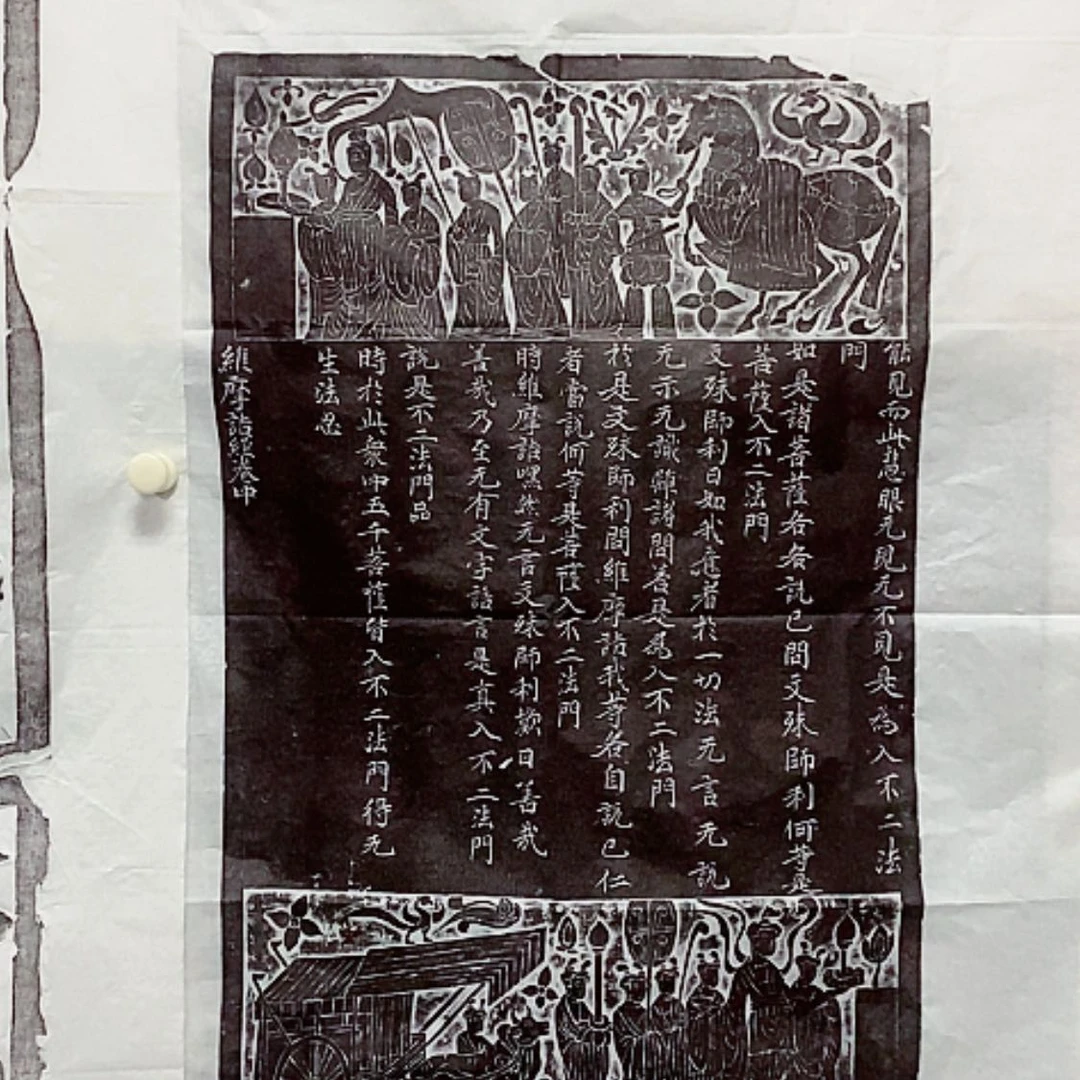 能見而此慧眼无見无不見是為入不二法
門
如是諸菩薩各各說已問文殊師利何等是
菩薩入不二法門
文殊師利曰如我意者於一切法无言无說
无示无識離諸問荅是為入不二法門
於是文殊師利問維摩詰我等各自說已仁
者當說何等是菩薩入不二法門
時維摩詰嘿然无言文殊師利歎曰善哉
善哉乃至无有文字語言是真入不二法門
說是不二法門品
時於此眾中五千菩薩皆入不二法門得无
生法忍
維摩詰經卷中